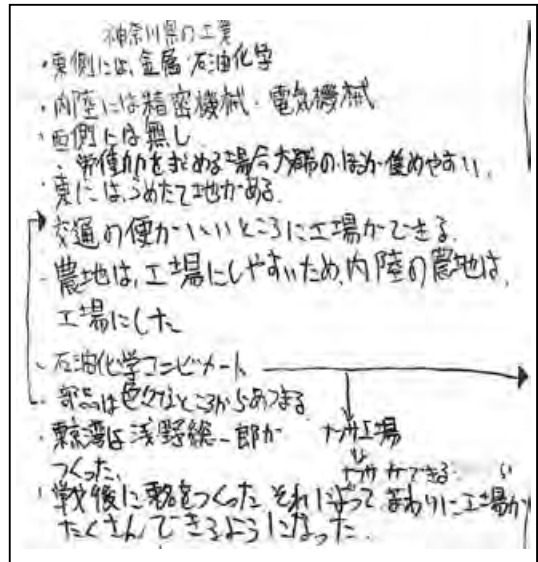 神奈川県の工業
・東側には、金属・石油化学
・内陸には精密機械・電気機械
・西側には無し
・労働力を求める場合大都市のほうが集めやすい。
・東には、うめたて地がある。
交通の便がいいところに工場ができる。
・農地は、工場にしやすいため、内陸の農地は、
工場にした
・石油化学コンビナート
・部品は色々なところからあつまる
・東京湾は浅野総一郎が ナフサ工場
つくった。
ナフサができる
・戦後に東名をつくった それによって まわりに工場が
たくさんできるようになった.